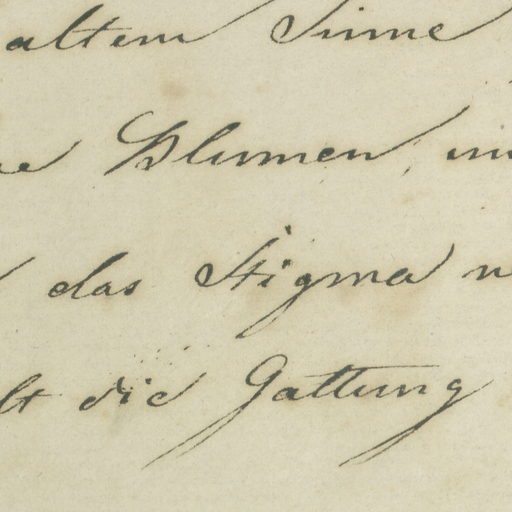 altem Sinne
Blumen,
das Stigma
die Gattung